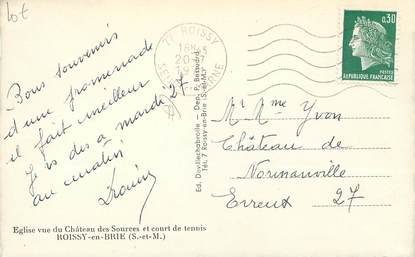 lot
77 ROISSY
18H
0,30
POSTES
REPUBLIQUE FRANÇAISE
Bons souvenirs
d'une promenade
il fait meilleur
Je vs dis à mardi 27
au matin
Mr Mme Yvon
Château de
Normanville
Evreux 27
Ed. Davillechabrolle - Dep. P.
Tél. 7 Roissy-en-Brie (S.-et-M.)
Eglise vue du Château des Sources et court de tennis
ROISSY-en-BRIE (S.-et-M.)